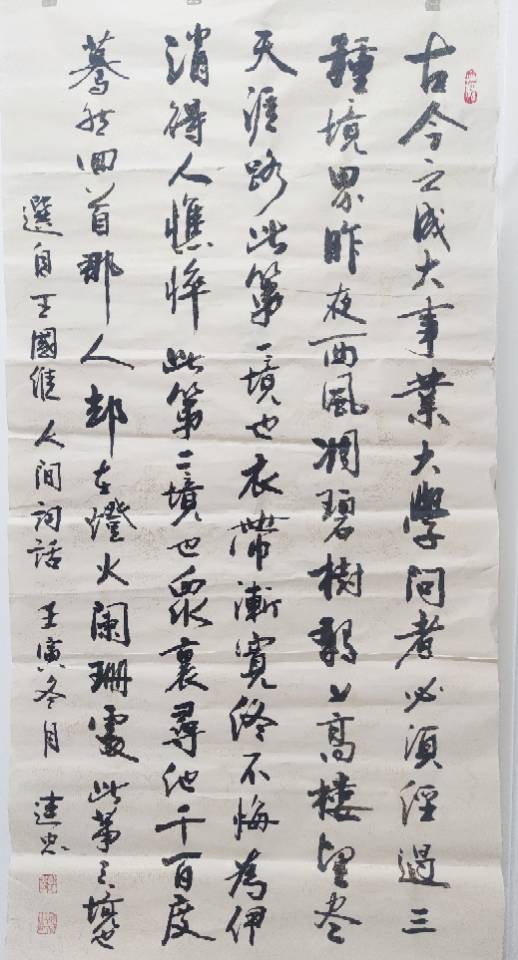 古今之成大事業大學问者必須經過三
種境界昨夜西風凋碧樹獨上高樓望尽
天涯路此第一境也衣帶漸寬終不悔為伊
消得人憔悴此第二境也眾裏尋他千百度
驀然回首那人却在燈火闌珊處此第三境也
選自王國維人間詞話 壬寅冬月 建忠